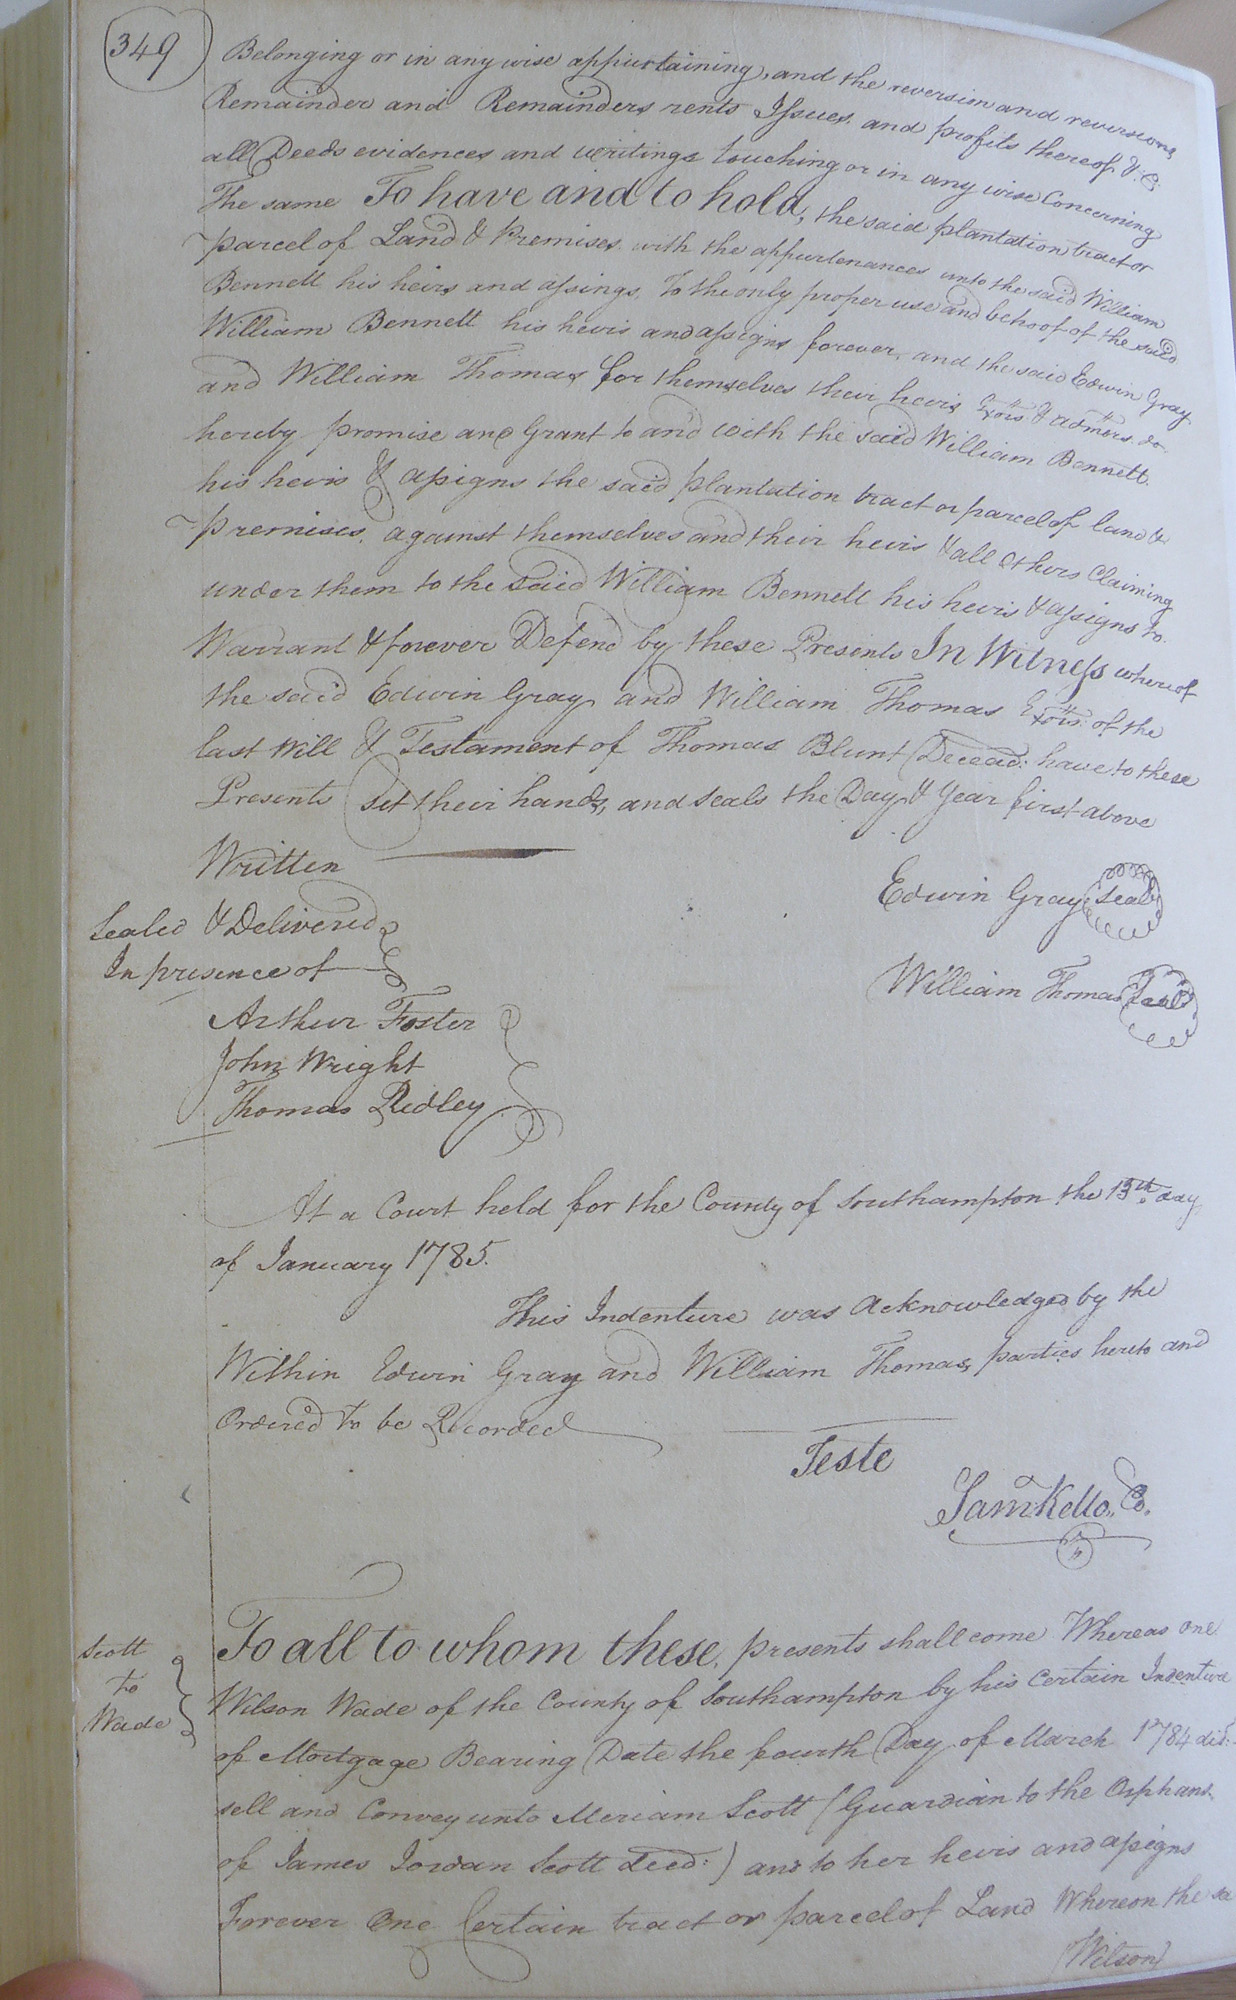 349
Belonging or in any wise appurtaining, and the reversion and reversions
Remainder and Remainders rents Issues and profits thereof & C:
all Deeds evidences and writings touching or in any wise Concerning
The same To have and to hold, the said plantation tract or
parcel of Land & Premises with the appurtenances unto the said William
Bennett his heirs and assings, To the only proper use and behoof of the said
William Bennett his heirs and assigns forever, and the said Edwin Gray
and William Thomas for themselves their heirs Exors & admors. do
hereby promise and Grant to and with the said William Bennett.
his heirs & assigns the said plantation tract or parcel of land &
premises, against themselves and their heirs & all others Claiming
under them to the said William Bennett his heirs & assigns to
Warrant & forever Defend by these Presents In Witness whereof
the said Edwin Gray and William Thomas Exors: of the
last Will & Testament of Thomas Blunt Decead: have to these
Presents set their hands, and seals the Day & Year first above
Written
Edwin Gray Seal
Sealed & Delivered
In presence of
William Thomas Seal
Arthur Foster
John Wright
Thomas Ridley
At a Court held for the County of Southampton the 13th. day
of January 1785.
This Indenture was Acknowledged by the
Within Edwin Gray and William Thomas, parties hereto and
Ordered to be Recorded
Teste
Sam Kello,, Co.
Scott
to
Wade
To all to whom these, presents shall come Whereas one
Wilson Wade of the County of Southampton by his Certain Indenture
of Mortgage Bearing Date the fourth Day of March 1784 did:
sell and Convey unto Meriam Scott (Guardian to the Orphans.
of James Jordan Scott deed:) and to her heirs and assigns
Forever One Certain tract or parcel of Land Whereon the sa
(Wilson)